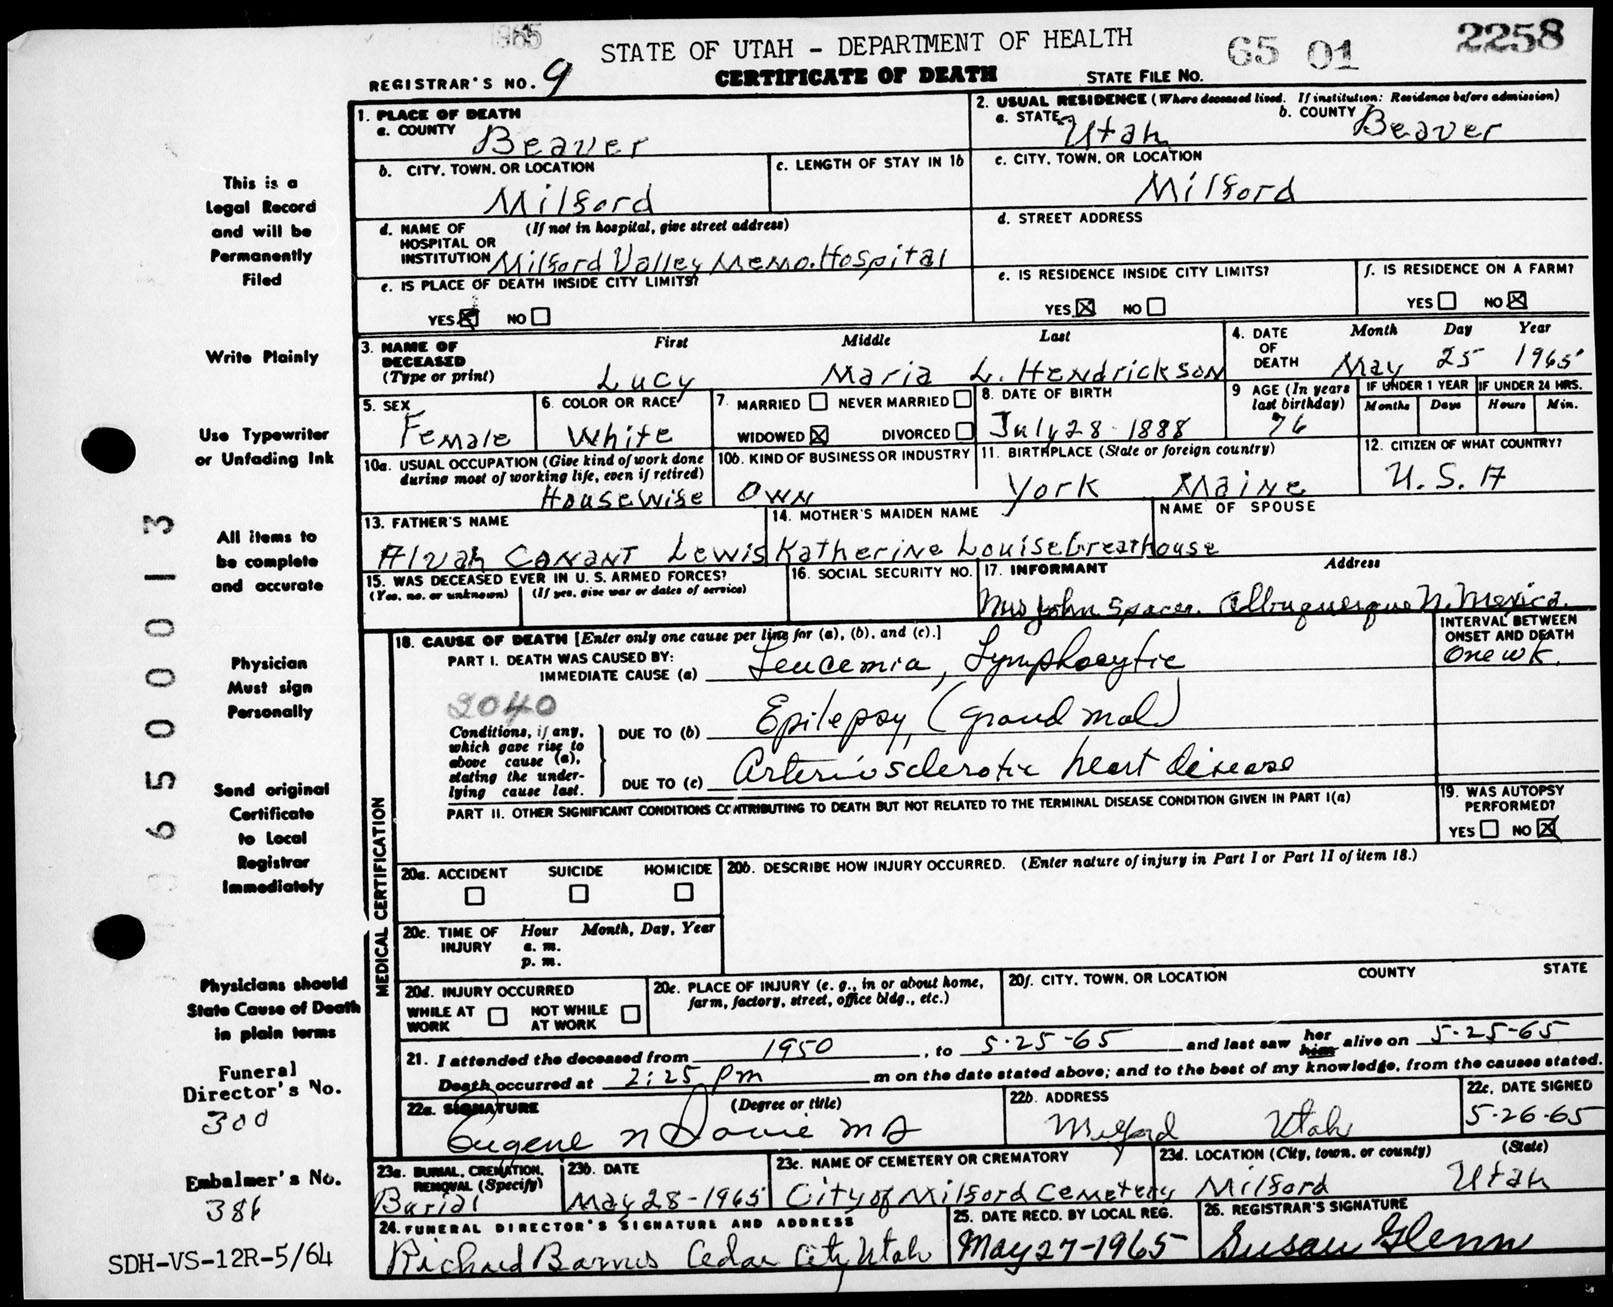 1965
STATE OF UTAH - DEPARTMENT OF HEALTH 65 01 2258
REGISTRAR'S NO. 9 CERTIFICATE OF DEATH STATE FILE NO.
1. PLACE OF DEATH
a. COUNTY
Beaver
2. USUAL RESIDENCE (Where deceased lived. If institution: Residence before admission)
a. STATE Utah b. COUNTY Beaver
b. CITY, TOWN, OR LOCATION
Milford
c. LENGTH OF STAY IN 1b
c. CITY, TOWN, OR LOCATION
Milford
d. NAME OF HOSPITAL OR INSTITUTION (If not in hospital, give street address)
Milford Valley Memo. Hospital
d. STREET ADDRESS
e. IS PLACE OF DEATH INSIDE CITY LIMITS?
YES ☒ NO ☐
e. IS RESIDENCE INSIDE CITY LIMITS?
YES ☒ NO ☐
f. IS RESIDENCE ON A FARM?
YES ☐ NO ☒
3. NAME OF DECEASED (Type or print)
First Middle Last
Lucy Maria L. Hendrickson
4. DATE OF DEATH
Month Day Year
May 25 1965
5. SEX
Female
6. COLOR OR RACE
White
7. MARRIED ☐ NEVER MARRIED ☐
WIDOWED ☒ DIVORCED ☐
8. DATE OF BIRTH
July 28-1888
9 AGE (In years last birthday)
76
IF UNDER 1 YEAR
Months Days
IF UNDER 24 HRS.
Hours Min.
10a. USUAL OCCUPATION (Give kind of work done during most of working life, even if retired)
Housewife
10b. KIND OF BUSINESS OR INDUSTRY
Own
11. BIRTHPLACE (State or foreign country)
York Maine
12. CITIZEN OF WHAT COUNTRY?
U.S.A
13. FATHER'S NAME
Alvah Conant Lewis
14. MOTHER'S MAIDEN NAME
Katherine Louise Greathouse
NAME OF SPOUSE
15. WAS DECEASED EVER IN U.S. ARMED FORCES?
(Yes, no, or unknown) (If yes, give war or dates of service)
16. SOCIAL SECURITY NO.
17. INFORMANT Address
Mrs John Albuquerque N. Mexico.
18. CAUSE OF DEATH [Enter only one cause per line for (a), (b), and (c).]
INTERVAL BETWEEN ONSET AND DEATH
PART I. DEATH WAS CAUSED BY:
IMMEDIATE CAUSE (a) Leucemia, Lymphocytic One wk.
2040
Conditions, if any, which gave rise to above cause (a), stating the underlying cause last.
DUE TO (b) Epilepsy, (grand mal)
DUE TO (c) Arteriosclerotic heart disease
PART II. OTHER SIGNIFICANT CONDITIONS CONTRIBUTING TO DEATH BUT NOT RELATED TO THE TERMINAL DISEASE CONDITION GIVEN IN PART I(a)
19. WAS AUTOPSY PERFORMED?
YES ☐ NO ☒
MEDICAL CERTIFICATION
20a. ACCIDENT SUICIDE HOMICIDE
☐ ☐ ☐
20b. DESCRIBE HOW INJURY OCCURRED. (Enter nature of injury in Part I or Part II of item 18.)
20c. TIME OF INJURY
Hour Month, Day, Year
a. m.
p. m.
20d. INJURY OCCURRED
WHILE AT WORK ☐ NOT WHILE AT WORK ☐
20e. PLACE OF INJURY (e. g., in or about home, farm, factory, street, office bldg., etc.)
20f. CITY, TOWN, OR LOCATION COUNTY STATE
21. I attended the deceased from 1950, to 5-25-65 and last saw her him alive on 5-25-65
Death occurred at 2:25 pm m on the date stated above; and to the best of my knowledge, from the causes stated.
22a. SIGNATURE (Degree or title)
Eugene N Davie MD
22b. ADDRESS
Milford Utah
22c. DATE SIGNED
5-26-65
23a. BURIAL, CREMATION, REMOVAL (Specify)
Burial
23b. DATE
May 28-1965
23c. NAME OF CEMETERY OR CREMATORY
City of Milford Cemetery
23d. LOCATION (City, town, or county) (State)
Milford Utah
24. FUNERAL DIRECTOR'S SIGNATURE AND ADDRESS
Richard Barrus Cedar City Utah
25. DATE RECD. BY LOCAL REG.
May 27-1965
26. REGISTRAR'S SIGNATURE
Susan Glenn
This is a
Legal Record
and will be
Permanently
Filed
Write Plainly
Use Typewriter
or Unfading Ink
All items to
be complete
and accurate
Physician
Must sign
Personally
Send original
Certificate
to Local
Registrar
Immediately
Physicians should
State Cause of Death
in plain terms
Funeral
Director's No.
300
Embalmer's No.
386
SDH-VS-12R-5/64